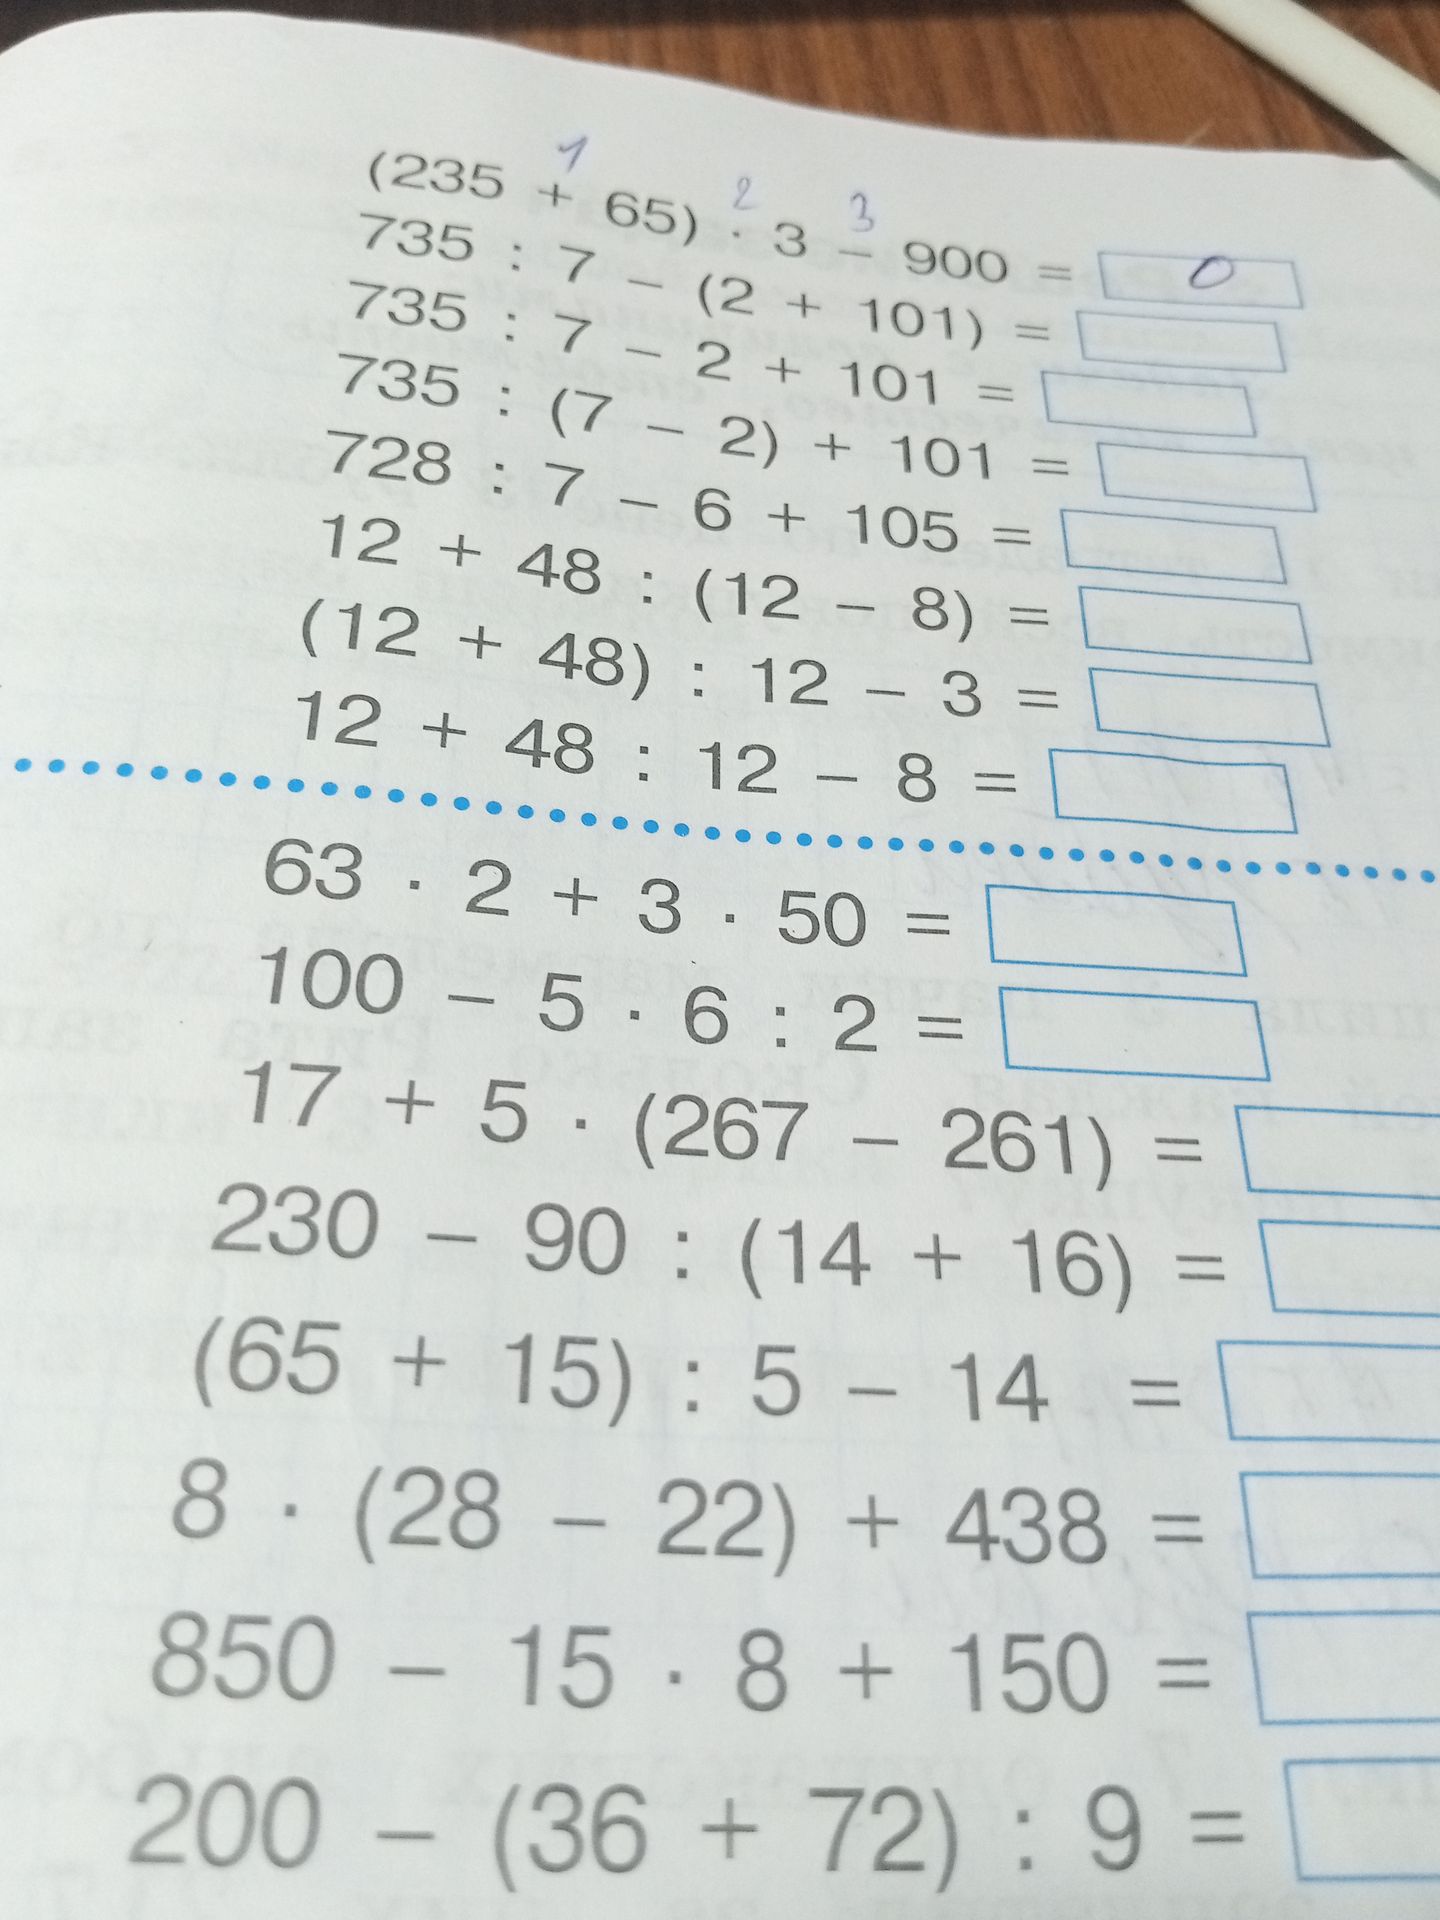 1 2 3
(235 + 65) · 3 – 900 = 0
735 : 7 – (2 + 101) =
735 : 7 – 2 + 101 =
735 : (7 – 2) + 101 =
728 : 7 – 6 + 105 =
12 + 48 : (12 – 8) =
(12 + 48) : 12 – 3 =
12 + 48 : 12 – 8 =
63 · 2 + 3 · 50 =
100 – 5 · 6 : 2 =
17 + 5 · (267 – 261) =
230 – 90 : (14 + 16) =
(65 + 15) : 5 – 14 =
8 · (28 – 22) + 438 =
850 – 15 · 8 + 150 =
200 – (36 + 72) : 9 =